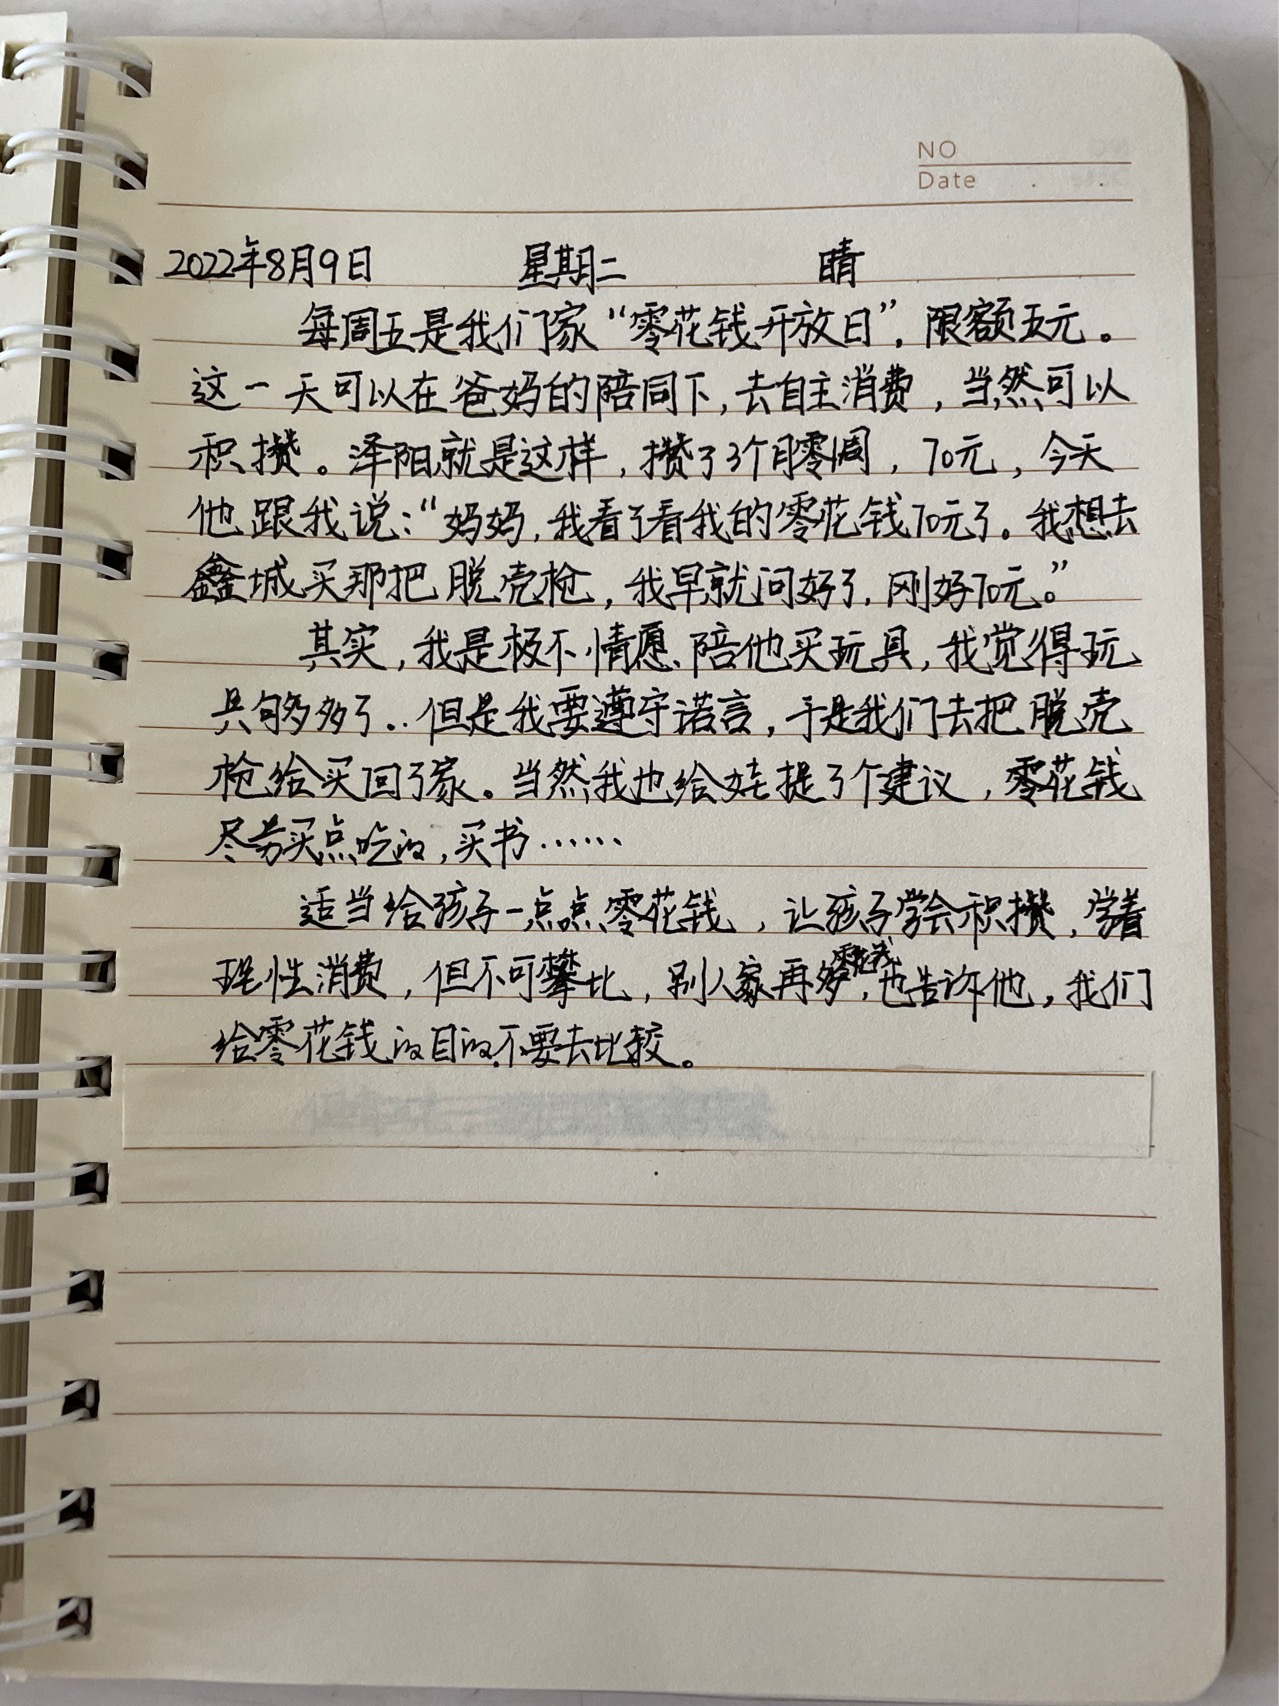 NO
Date . .
2022年8月9日 星期二 晴
每周五是我们家“零花钱开放日”，限额五元。
这一天可以在爸妈的陪同下，去自主消费，当然可以
积攒。泽阳就是这样，攒了3个月零周，70元，今天
他跟我说：“妈妈，我看了看我的零花钱70元了。我想去
鑫城买那把脱壳枪，我早就问好了，刚好70元。”
其实，我是极不情愿、陪他买玩具，我觉得玩
具够多了..但是我要遵守诺言，于是我们去把脱壳
枪给买回了家。当然我也给娃提了个建议，零花钱
尽买点吃的，买书……
适当给孩子一点点零花钱，让孩子学会积攒，学着
理性消费，但不可攀比，别人家再多零花钱，也告诉他，我们
给零花钱的目的不要去比较。